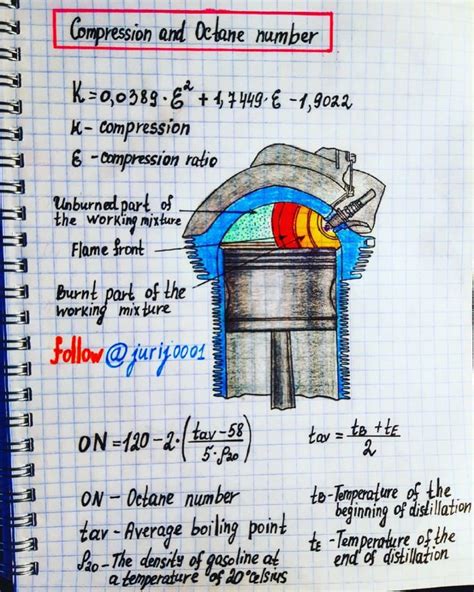 Compression and Octane number
K=0,0389·Ɛ²+1,7449·Ɛ-1,9022
K-compression
Ɛ-compression ratio
Unburned part of
the working mixture
Flame front
Burnt part of the
working mixture
follow@jurij0001
ON=120-2·(tav-58/5·ρ20)
tav=tB+tE/2
ON-Octane number
tav-Average boiling point
ρ20-The density of gasoline at
a temperature of 20°Celsius
tB-Temperature of the
beginning of distillation
tE-Temperature of the
end of distillation